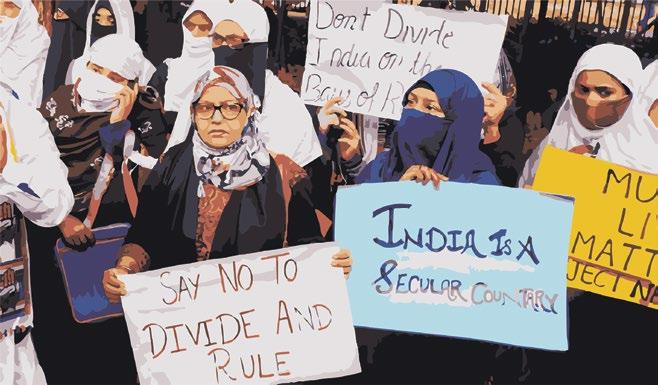 Don't Divide
India on the
of
SAY NO TO
DIVIDE AND
RULE
INDIA IS A
SECULAR COUNTARY
MU
LI
MATT
JECT